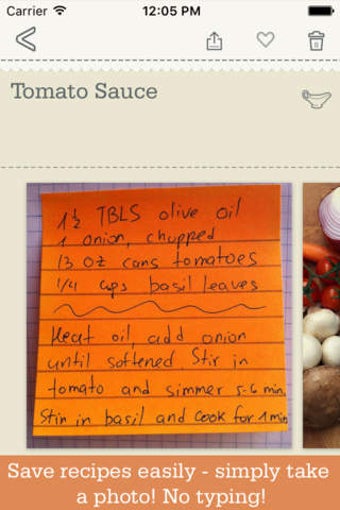 Carrier 12:05 PM
Tomato Sauce
1½ TBLS olive oil
1 onion, chopped
13 oz cans tomatoes
1/4 cups basil leaves
Heat oil, add onion
until softened. Stir in
tomato and simmer 5-6 min.
Stir in basil and cook for 1 min
Save recipes easily - simply take
a photo! No typing!